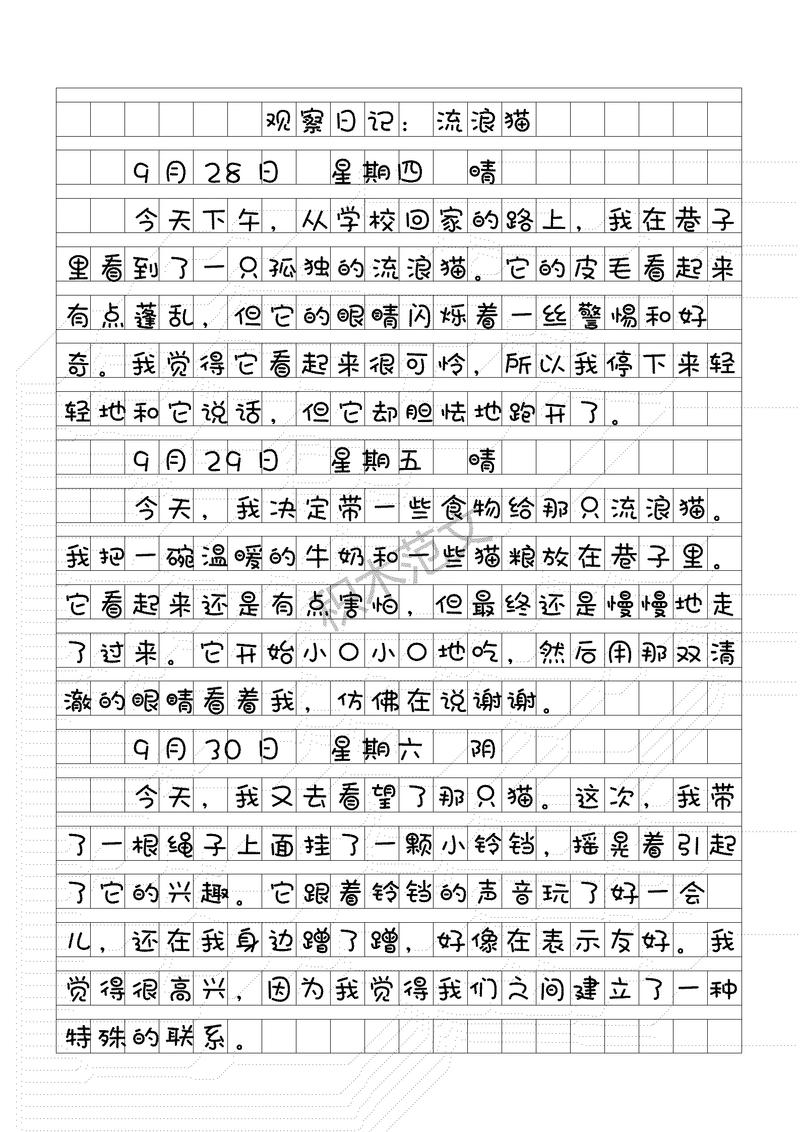 观察日记：流浪猫
9月28日 星期四 晴
今天下午，从学校回家的路上，我在巷子
里看到了一只孤独的流浪猫。它的皮毛看起来
有点蓬乱，但它的眼睛闪烁着一丝警惕和好
奇。我觉得它看起来很可怜，所以我停下来轻
轻地和它说话，但它却胆怯地跑开了。
9月29日 星期五 晴
今天，我决定带一些食物给那只流浪猫。
我把一碗温暖的牛奶和一些猫粮放在巷子里。
它看起来还是有点害怕，但最终还是慢慢地走
了过来。它开始小口小口地吃，然后用那双清
澈的眼睛看着我，仿佛在说谢谢。
9月30日 星期六 阴
今天，我又去看望了那只猫。这次，我带
了一根绳子上面挂了一颗小铃铛，摇晃着引起
了它的兴趣。它跟着铃铛的声音玩了好一会
儿，还在我身边蹭了蹭，好像在表示友好。我
觉得很高兴，因为我觉得我们之间建立了一种
特殊的联系。
积木范文